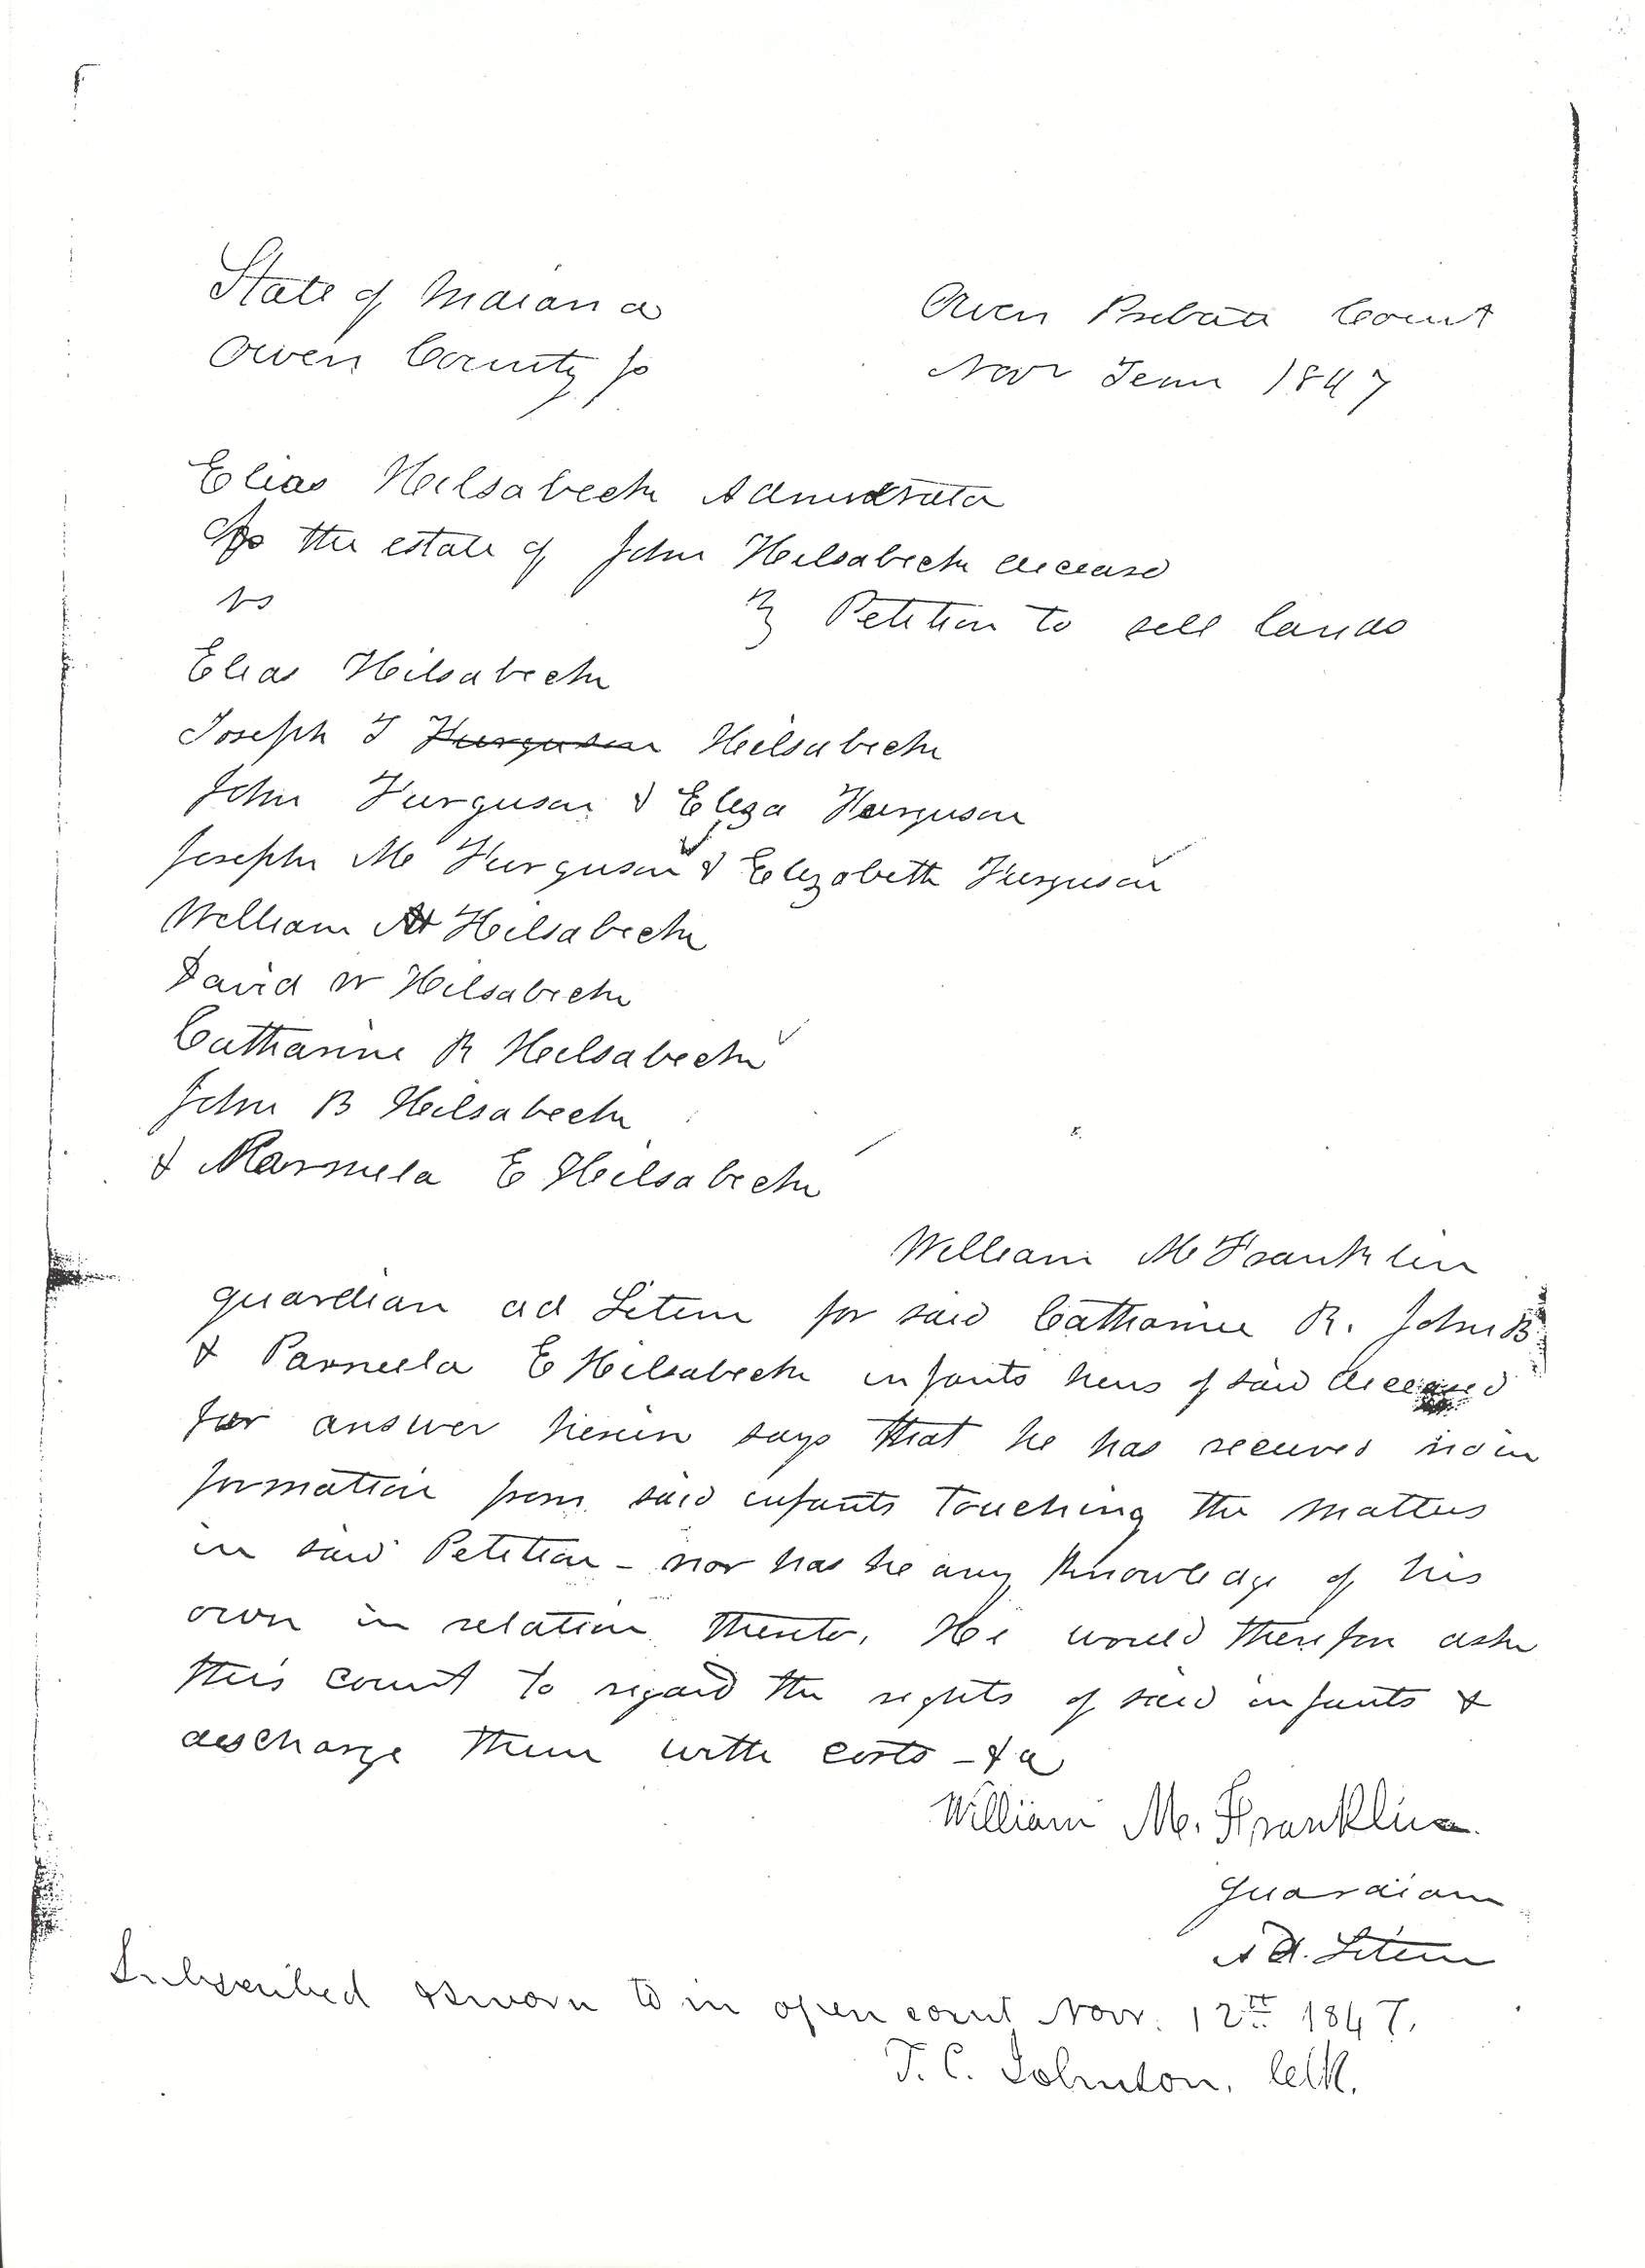 State of Indiana
Owen Probate Court
Owen County ss
Nov Term 1847
Elias Hilsabeck Administrator
of the estate of John Hilsabeck deceased
vs
} Petition to sell lands
Elias Hilsabeck
Joseph T Furguson Hilsabeck
John Furguson & Eliza Furguson
Joseph M Furguson & Elizabeth Furguson
William Hilsabeck
David W Hilsabeck
Catharine R Hilsabeck
John B Hilsabeck
& Parmela E Hilsabeck
William M Franklin
guardian ad Litem for said Catharine R. John B
& Parmela E Hilsabeck infants heirs of said deceased
for answer herein says that he has received no in
formation from said infants touching the matters
in said Petition - nor has he any knowledge of his
own in relation thereto. He would therefor ask
this court to regard the rights of said infants &
discharge them with costs - &c
William M. Franklin
Guardian
Ad. Litem
Subscribed & sworn to in open court Nov. 12th 1847.
T. C. Johnson. Clk.